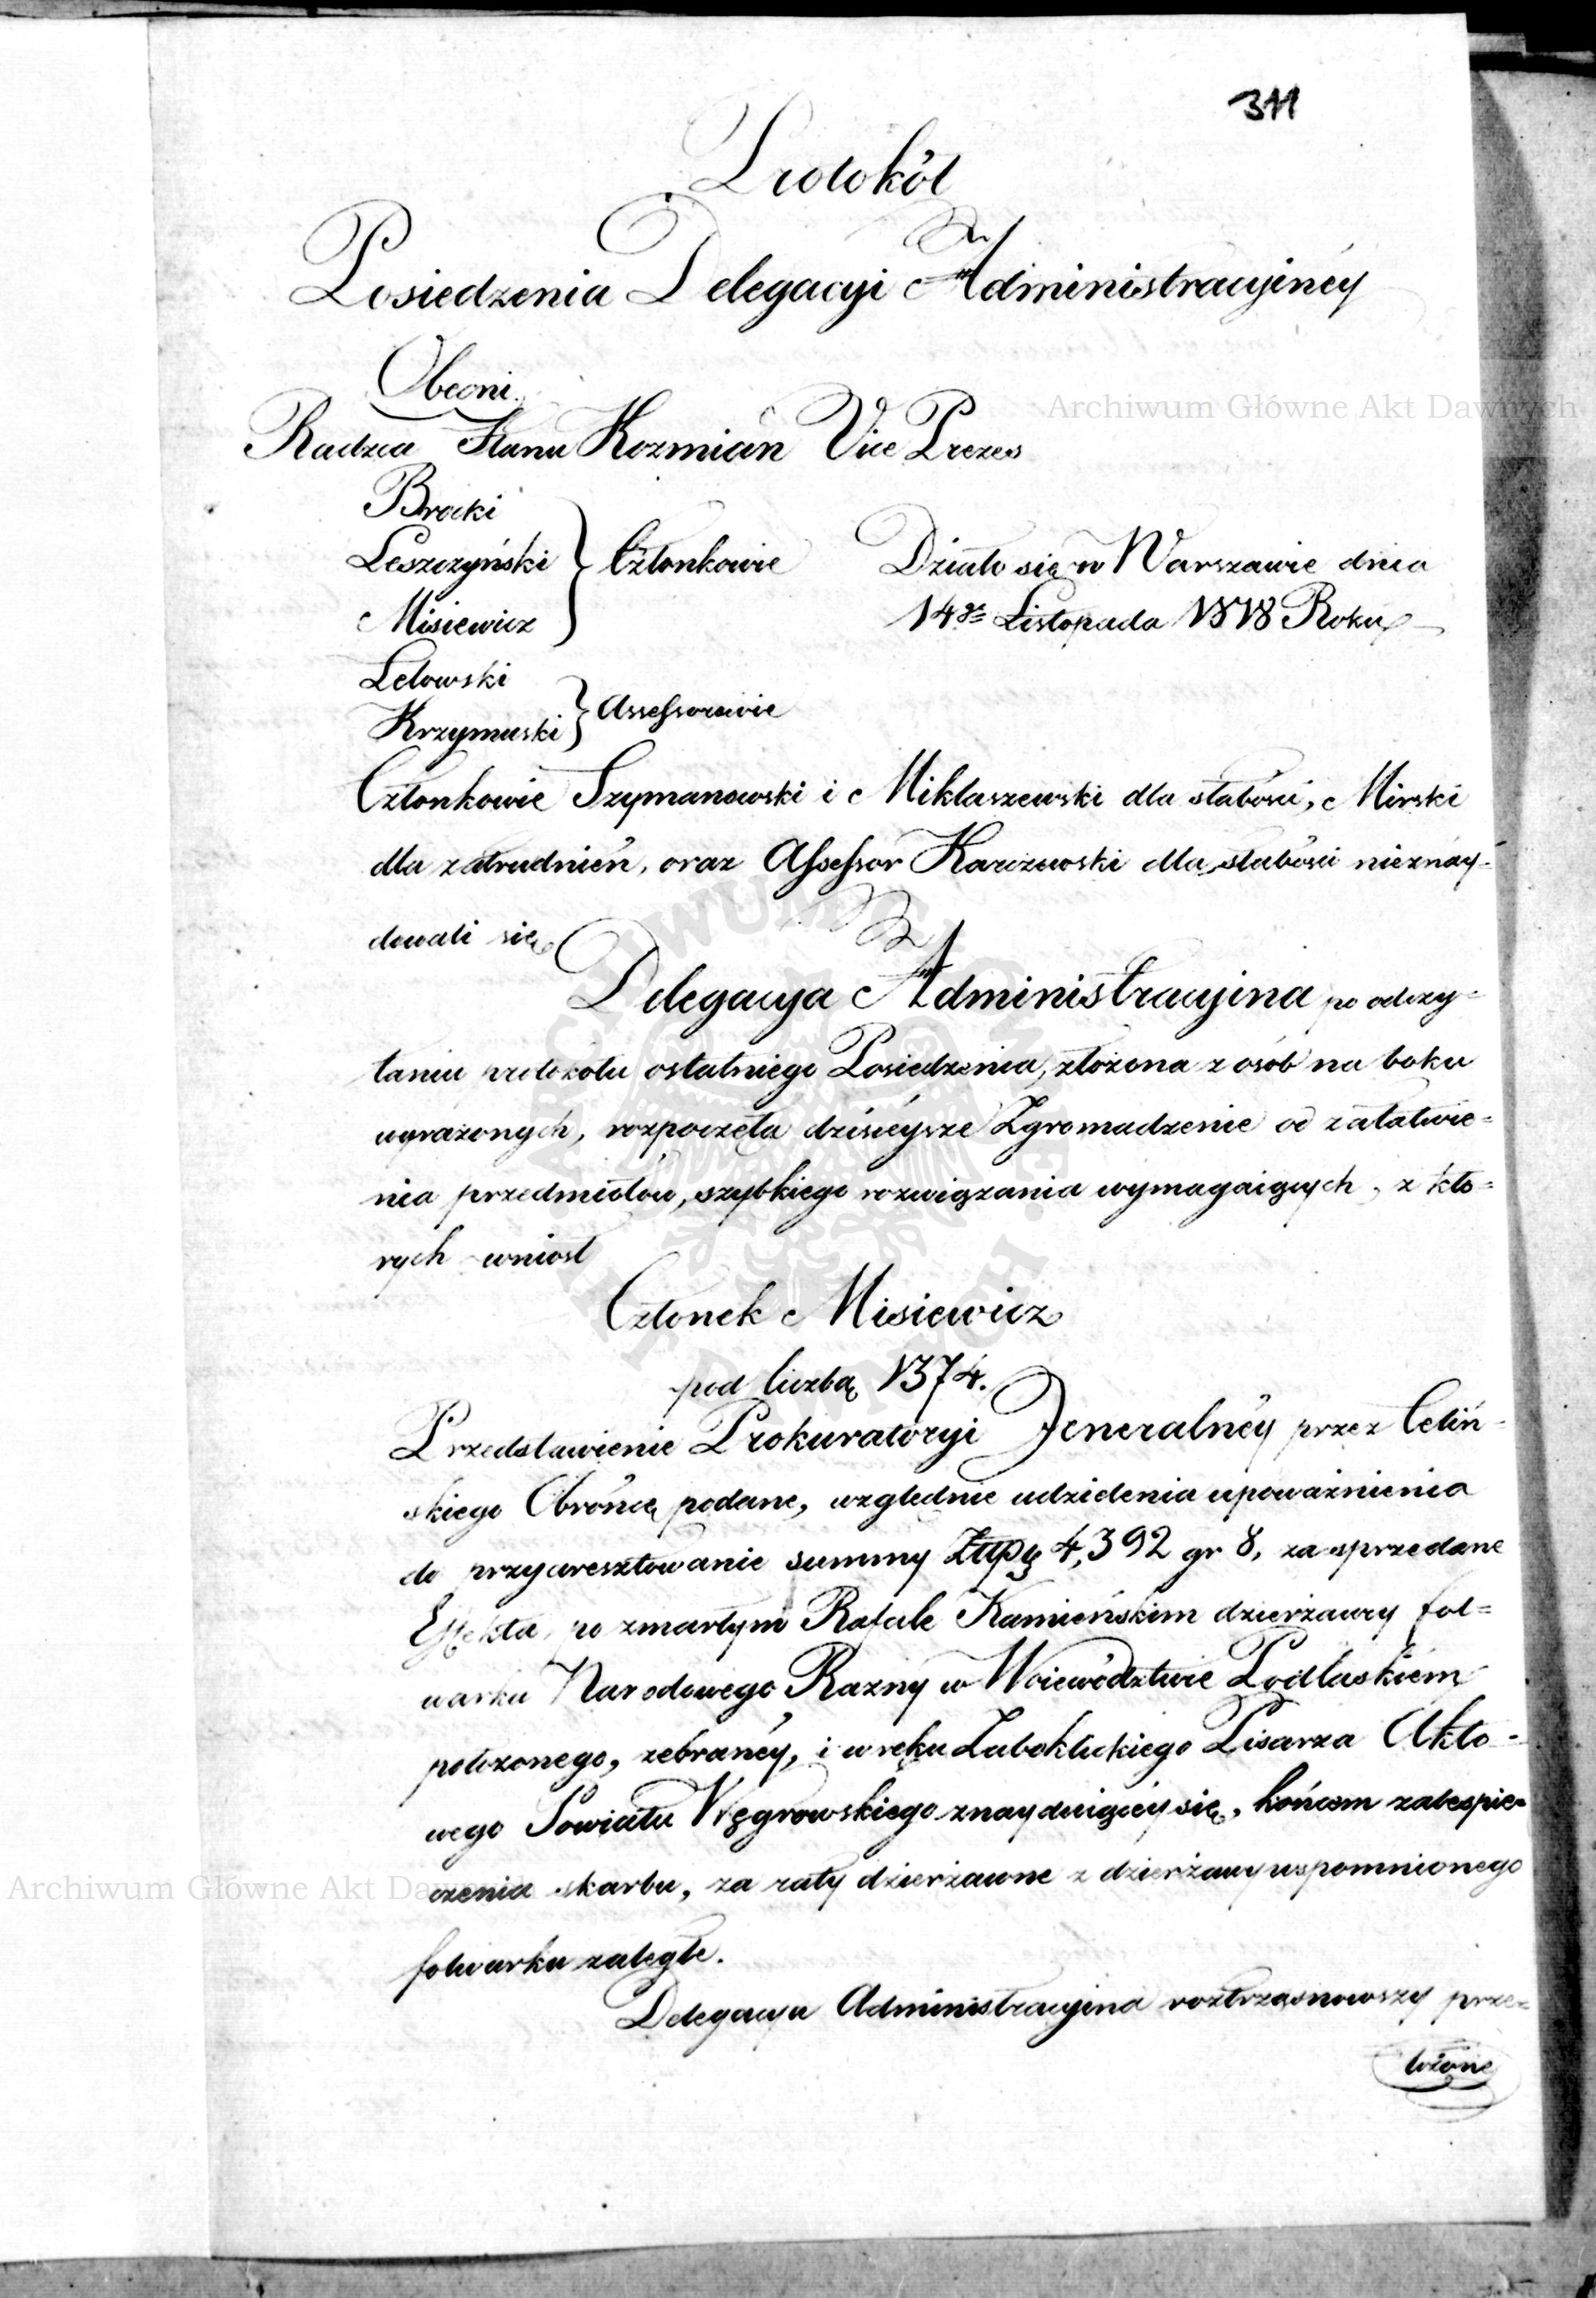 311
Protokół
Posiedzenia Delegacyi Administracyinéy
Obecni
Radzca Stanu Kozmian Vice Prezes
Brocki
Leszczyński } Członkowie
Misiewicz
Działo się w Warszawie dnia
14go Listopada 1818 Roku
Lelowski
Krzymuski } Assessorowie
Członkowie Szymanowski i Miklaszewski dla słabości, Mirski
dla zatrudnień, oraz Assessor Karczewski dla słabości nieznay-
dowali się
Delegacya Administracyina po odczy-
taniu protokołu ostatniego Posiedzenia, złożona z osób na boku
wyrażonych, rozpoczęła dzisiéysze Zgromadzenie od załatwie-
nia przedmiotów, szybkiego rozwiązania wymagaiących, z któ-
rych wniosł
Członek Misiewicz
pod liczbą 1374.
Przedstawienie Prokuratoryi Jeneralnéy przez Celiń-
skiego Obrońcę podane, względnie udzielenia upoważnienia
do przyaresztowanie summy Złłp 4,392 gr 8, za sprzedane
Effekta, po zmarłym Rafale Kamieńskim dzierżawcy fol-
warku Narodowego Razny w Woiewództwie Podlaskiém
położonego, zebranéy, i w ręku Zabokłickiego Pisarza Akto-
wego Powiatu Węgrowskiego znayduiącéy się, końcem zabespie-
czenia skarbu, za raty dzierżawne z dzierżawy wspomnionego
folwarku zaległe.
Delegacya Administracyina roztrząsnowszy prze-
łożone
Archiwum Główne Akt Dawnych
Archiwum Główne Akt Da